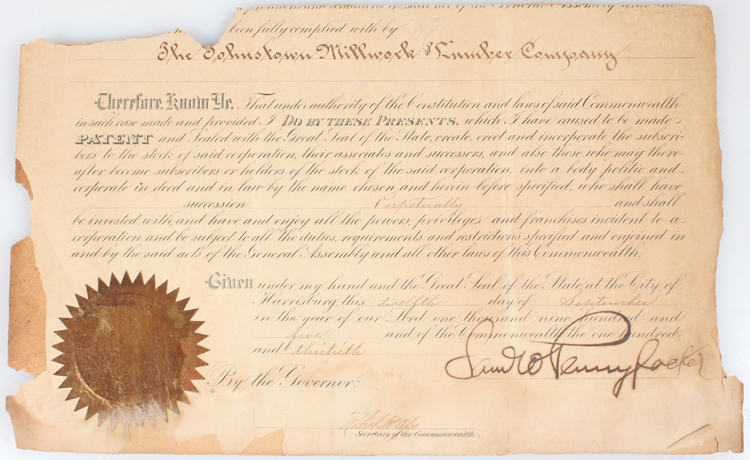 been fully complied with by
The Johnstown Millwork & Lumber Company
Therefore, Know Ye, That under authority of the Constitution and laws of said Commonwealth
in such case made and provided, I DO BY THESE PRESENTS, which I have caused to be made
PATENT and Sealed with the Great Seal of the State, create, erect and incorporate the subscri-
bers to the stock of said corporation, their associates and successors, and also those who may there-
after become subscribers or holders of the stock of the said corporation, into a body politic and
corporate in deed and in law by the name chosen and herein-before specified, who shall have
succession Perpetually and shall
be invested with, and have and enjoy all the powers, privileges and franchises incident to a
corporation and be subject to all the duties, requirements and restrictions specified and enjoined in
and by the said acts of the General Assembly and all other laws of this Commonwealth.
Given under my hand and the Great Seal of the State, at the City of
Harrisburg, this twelfth day of September
in the year of our Lord one thousand nine hundred and
five and of the Commonwealth the one hundred
and thirtieth
Saml W Pennypacker
By the Governor:
Secretary of the Commonwealth.